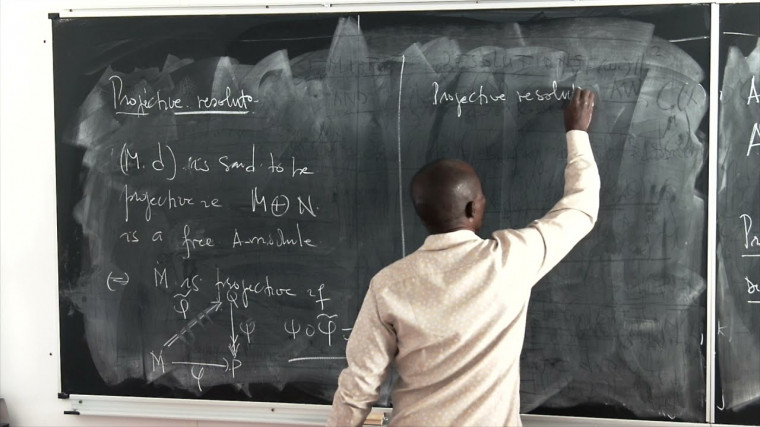 Projective resoluto-
(M, d) is said to be
projective ie M ⊕ N
is a free A-module
(=) M is projective if
φ̃ Q
ψ ψ o φ̃ =
M φ P
Projective resolut
A
A